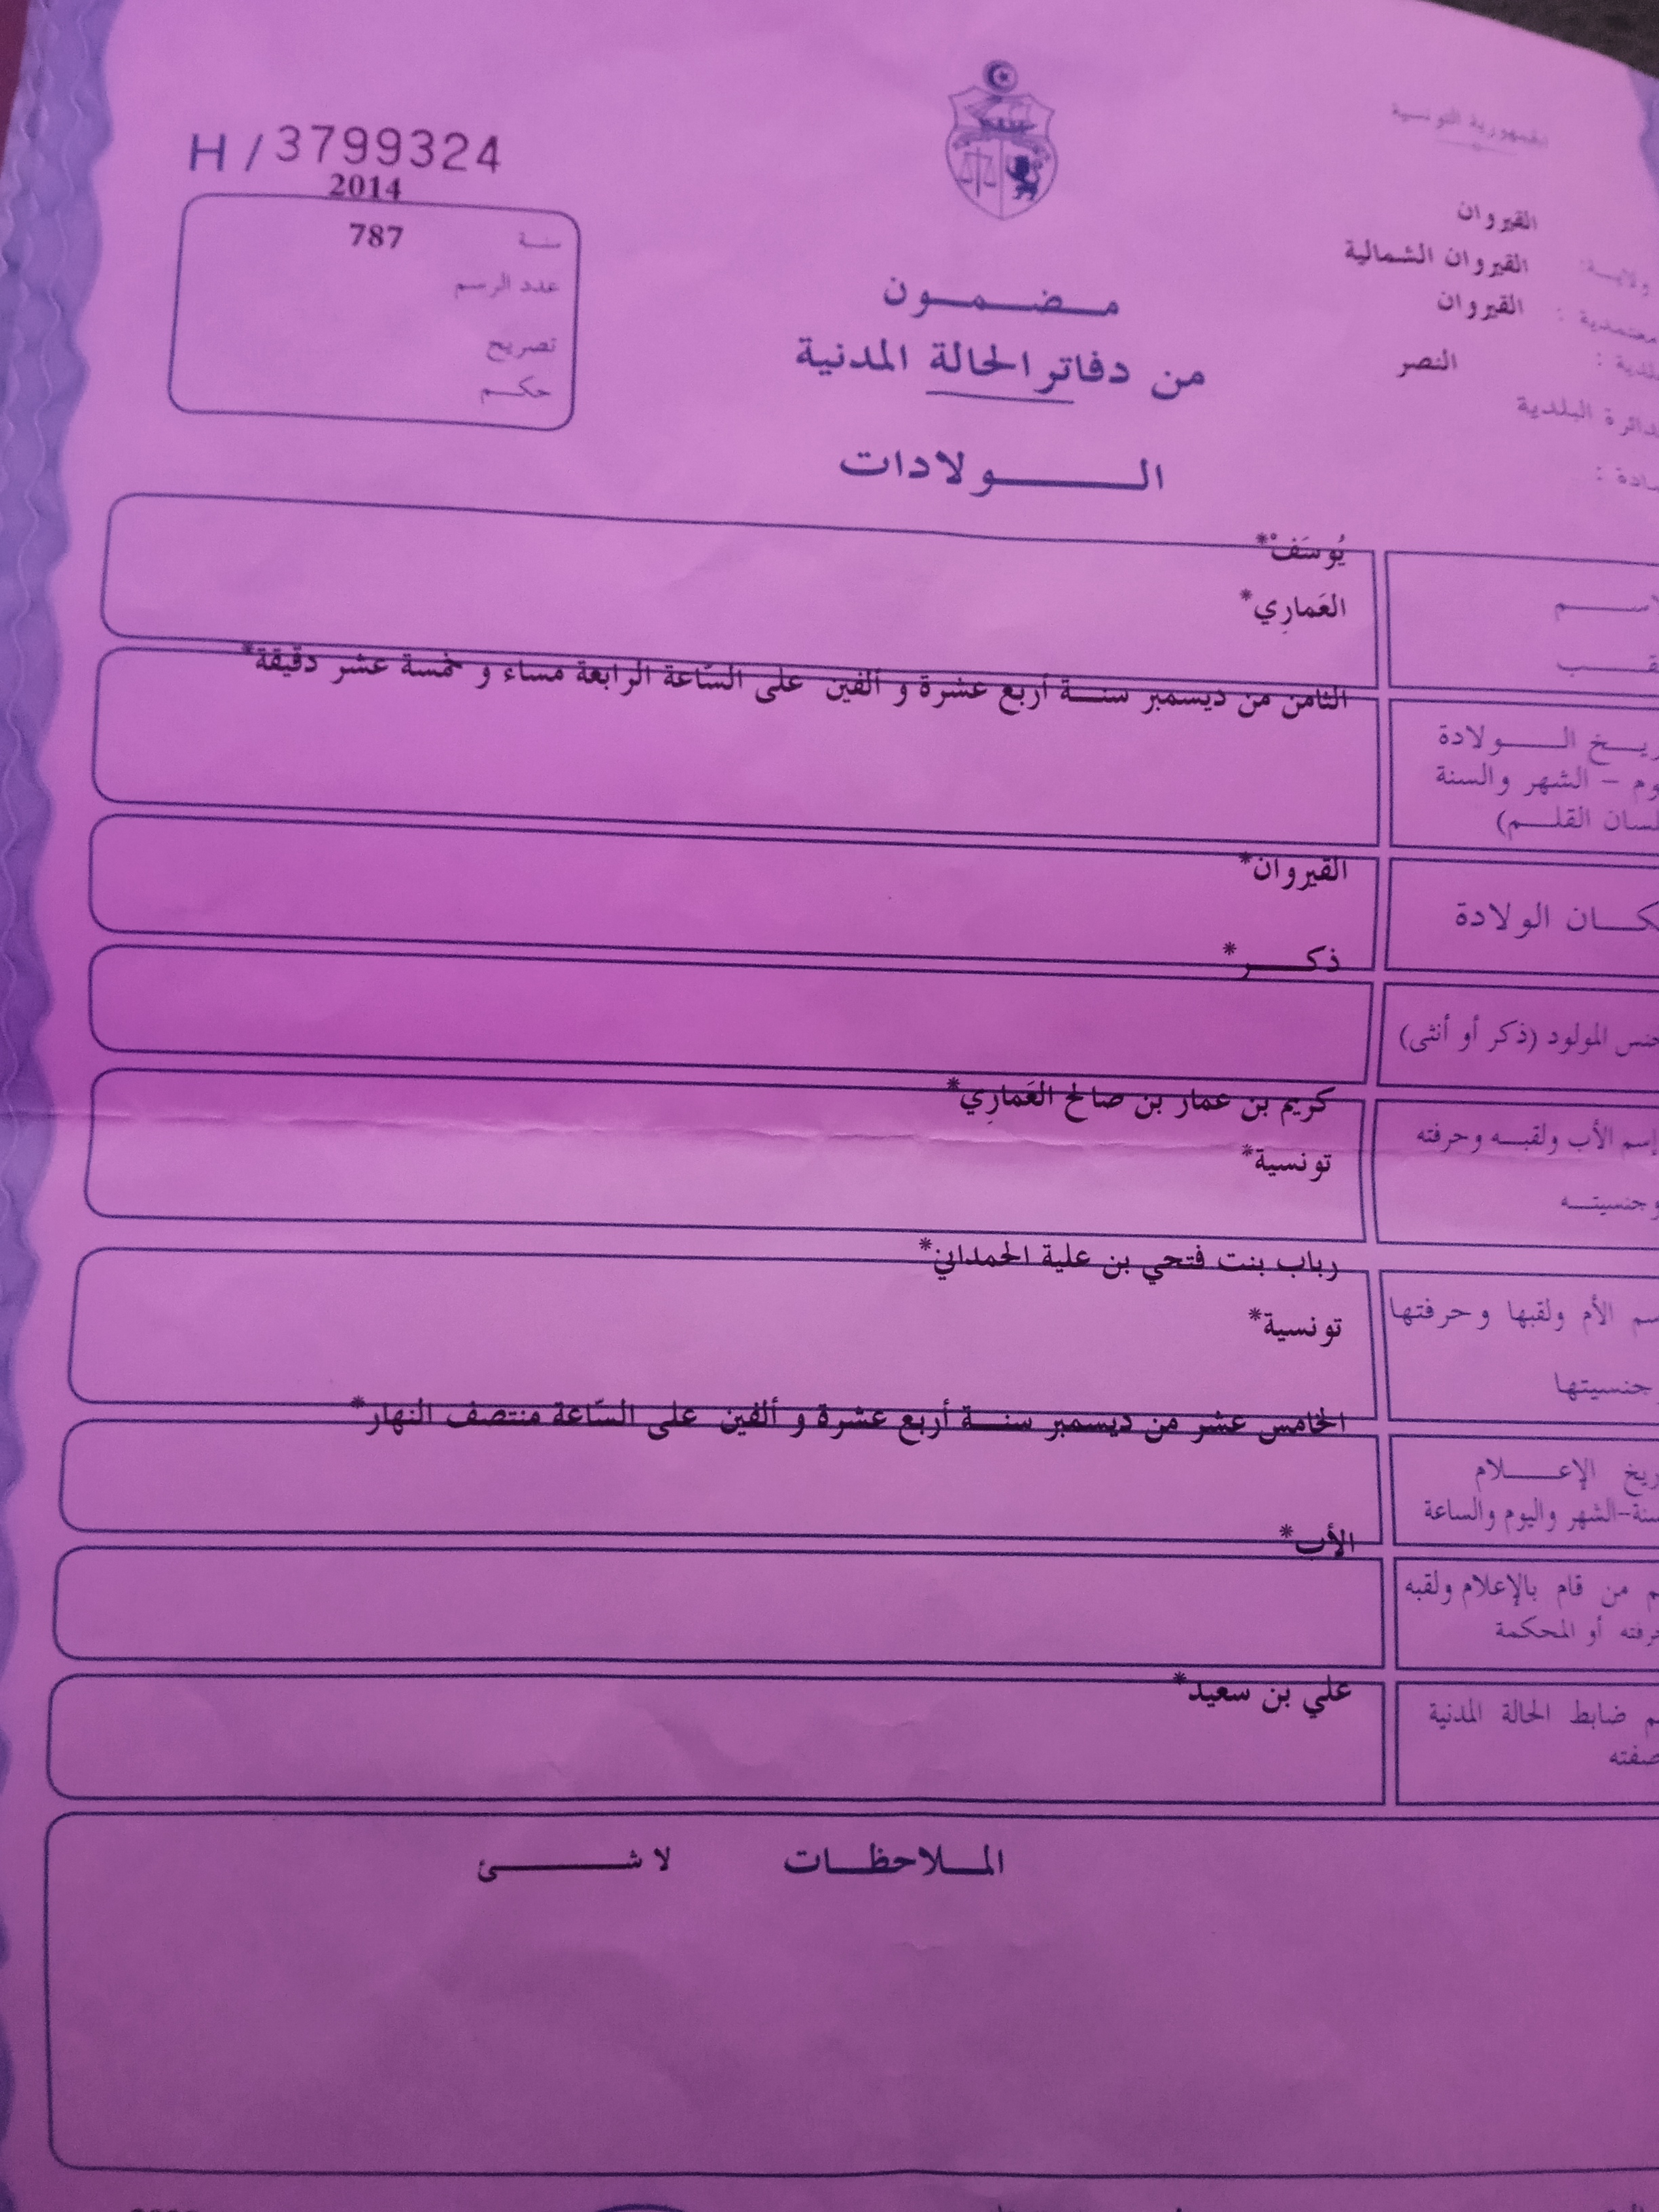 الجمهورية التونسية
H / 3799324
2014
سنة 787
عدد الرسم
تصريح
حكم
القيروان
ولاية:
القيروان الشمالية
معتمدية :
القيروان
بلدية :
النصر
الدائرة البلدية
:
مضمون
من دفاتر الحالة المدنية
الولادات
يُوسَفْ*
العَمارِي*
الثامن من ديسمبر سنة أربع عشرة و ألفين على السّاعة الرابعة مساء و خمسة عشر دقيقة*
الولادة
– الشهر والسنة
القلم)
القيروان*
الولادة
ذكر*
جنس المولود (ذكر أو أنثى)
كريم بن عمار بن صالح العَمارِي*
إسم الأب ولقبه وحرفته
تونسية*
وجنسيته
رباب بنت فتحي بن علية الحمداني*
الأم ولقبها وحرفتها
تونسية*
جنسيتها
الخامس عشر من ديسمبر سنة أربع عشرة و ألفين على السّاعة منتصف النهار*
الإعلام
–الشهر واليوم والساعة
الأب*
من قام بالإعلام ولقبه
أو المحكمة
علي بن سعيد*
ضابط الحالة المدنية
الملاحظات لا شئ